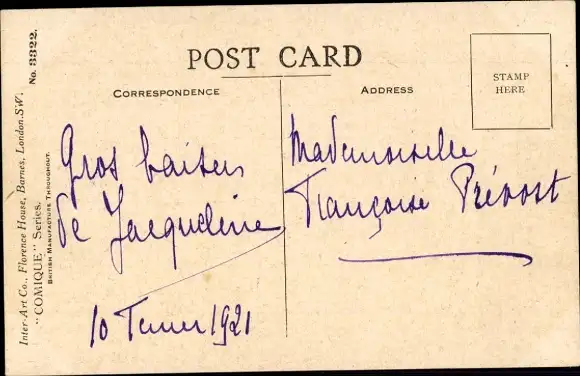 POST CARD
CORRESPONDENCE
ADDRESS
STAMP
HERE
Gros baisers
de Jacqueline
10 1921
Mademoiselle
Françoise Prévost
Inter-Art Co., Florence House, Barnes, London. S.W.
"COMIQUE" Series.
No. 3322.
BRITISH MANUFACTURE THROUGHOUT.